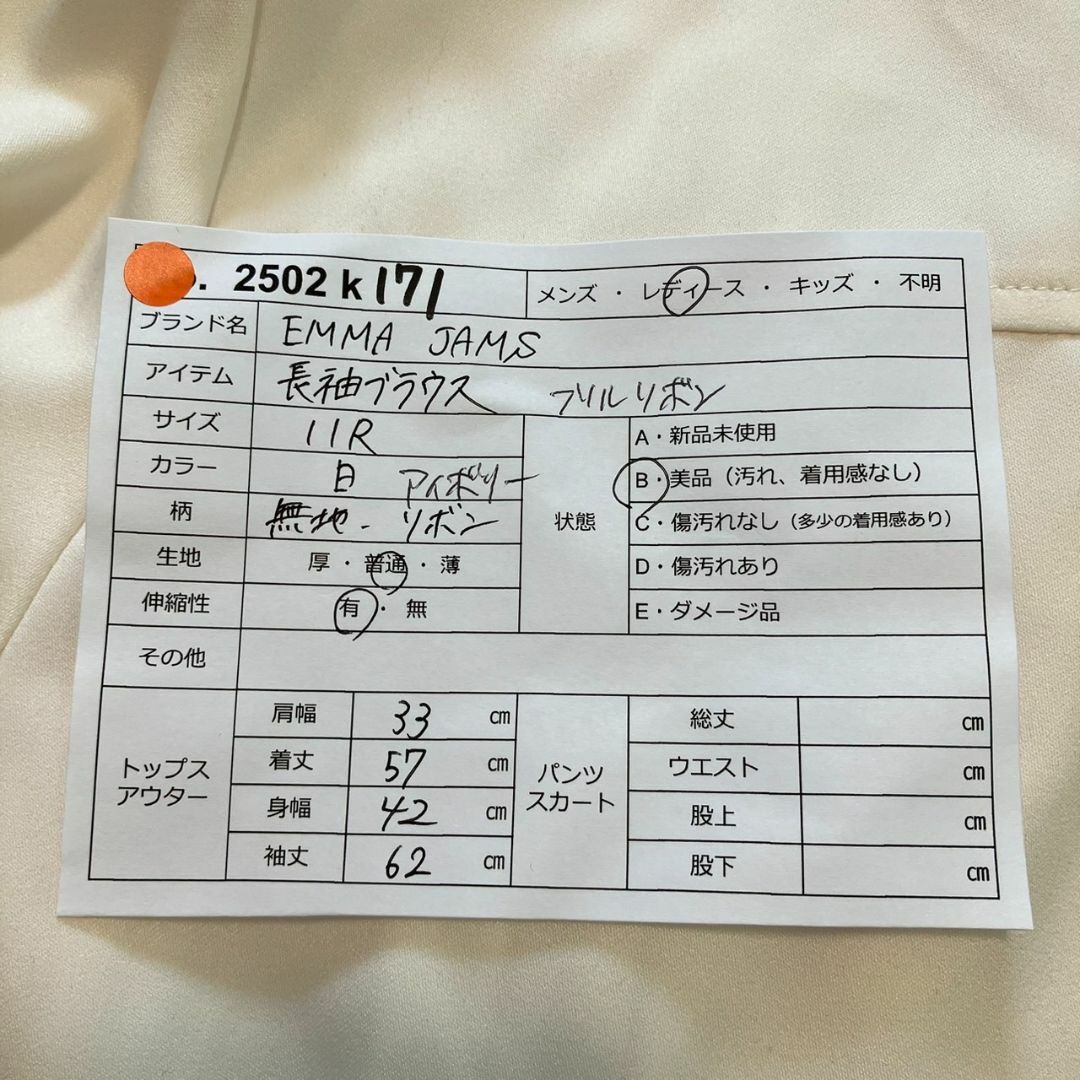 . 2502 k 171
メンズ ・ レディース ・ キッズ ・ 不明
ブランド名 EMMA JAMS
アイテム 長袖ブラウス フリルリボン
サイズ 11R
カラー 白 アイボリー
柄 無地・リボン
生地 厚・普通・薄
伸縮性 有・無
状態
A・新品未使用
B・美品（汚れ、着用感なし）
C・傷汚れなし（多少の着用感あり）
D・傷汚れあり
E・ダメージ品
その他
トップス
アウター
肩幅 33 ㎝
着丈 57 ㎝
身幅 42 ㎝
袖丈 62 ㎝
パンツ
スカート
総丈 ㎝
ウエスト ㎝
股上 ㎝
股下 ㎝